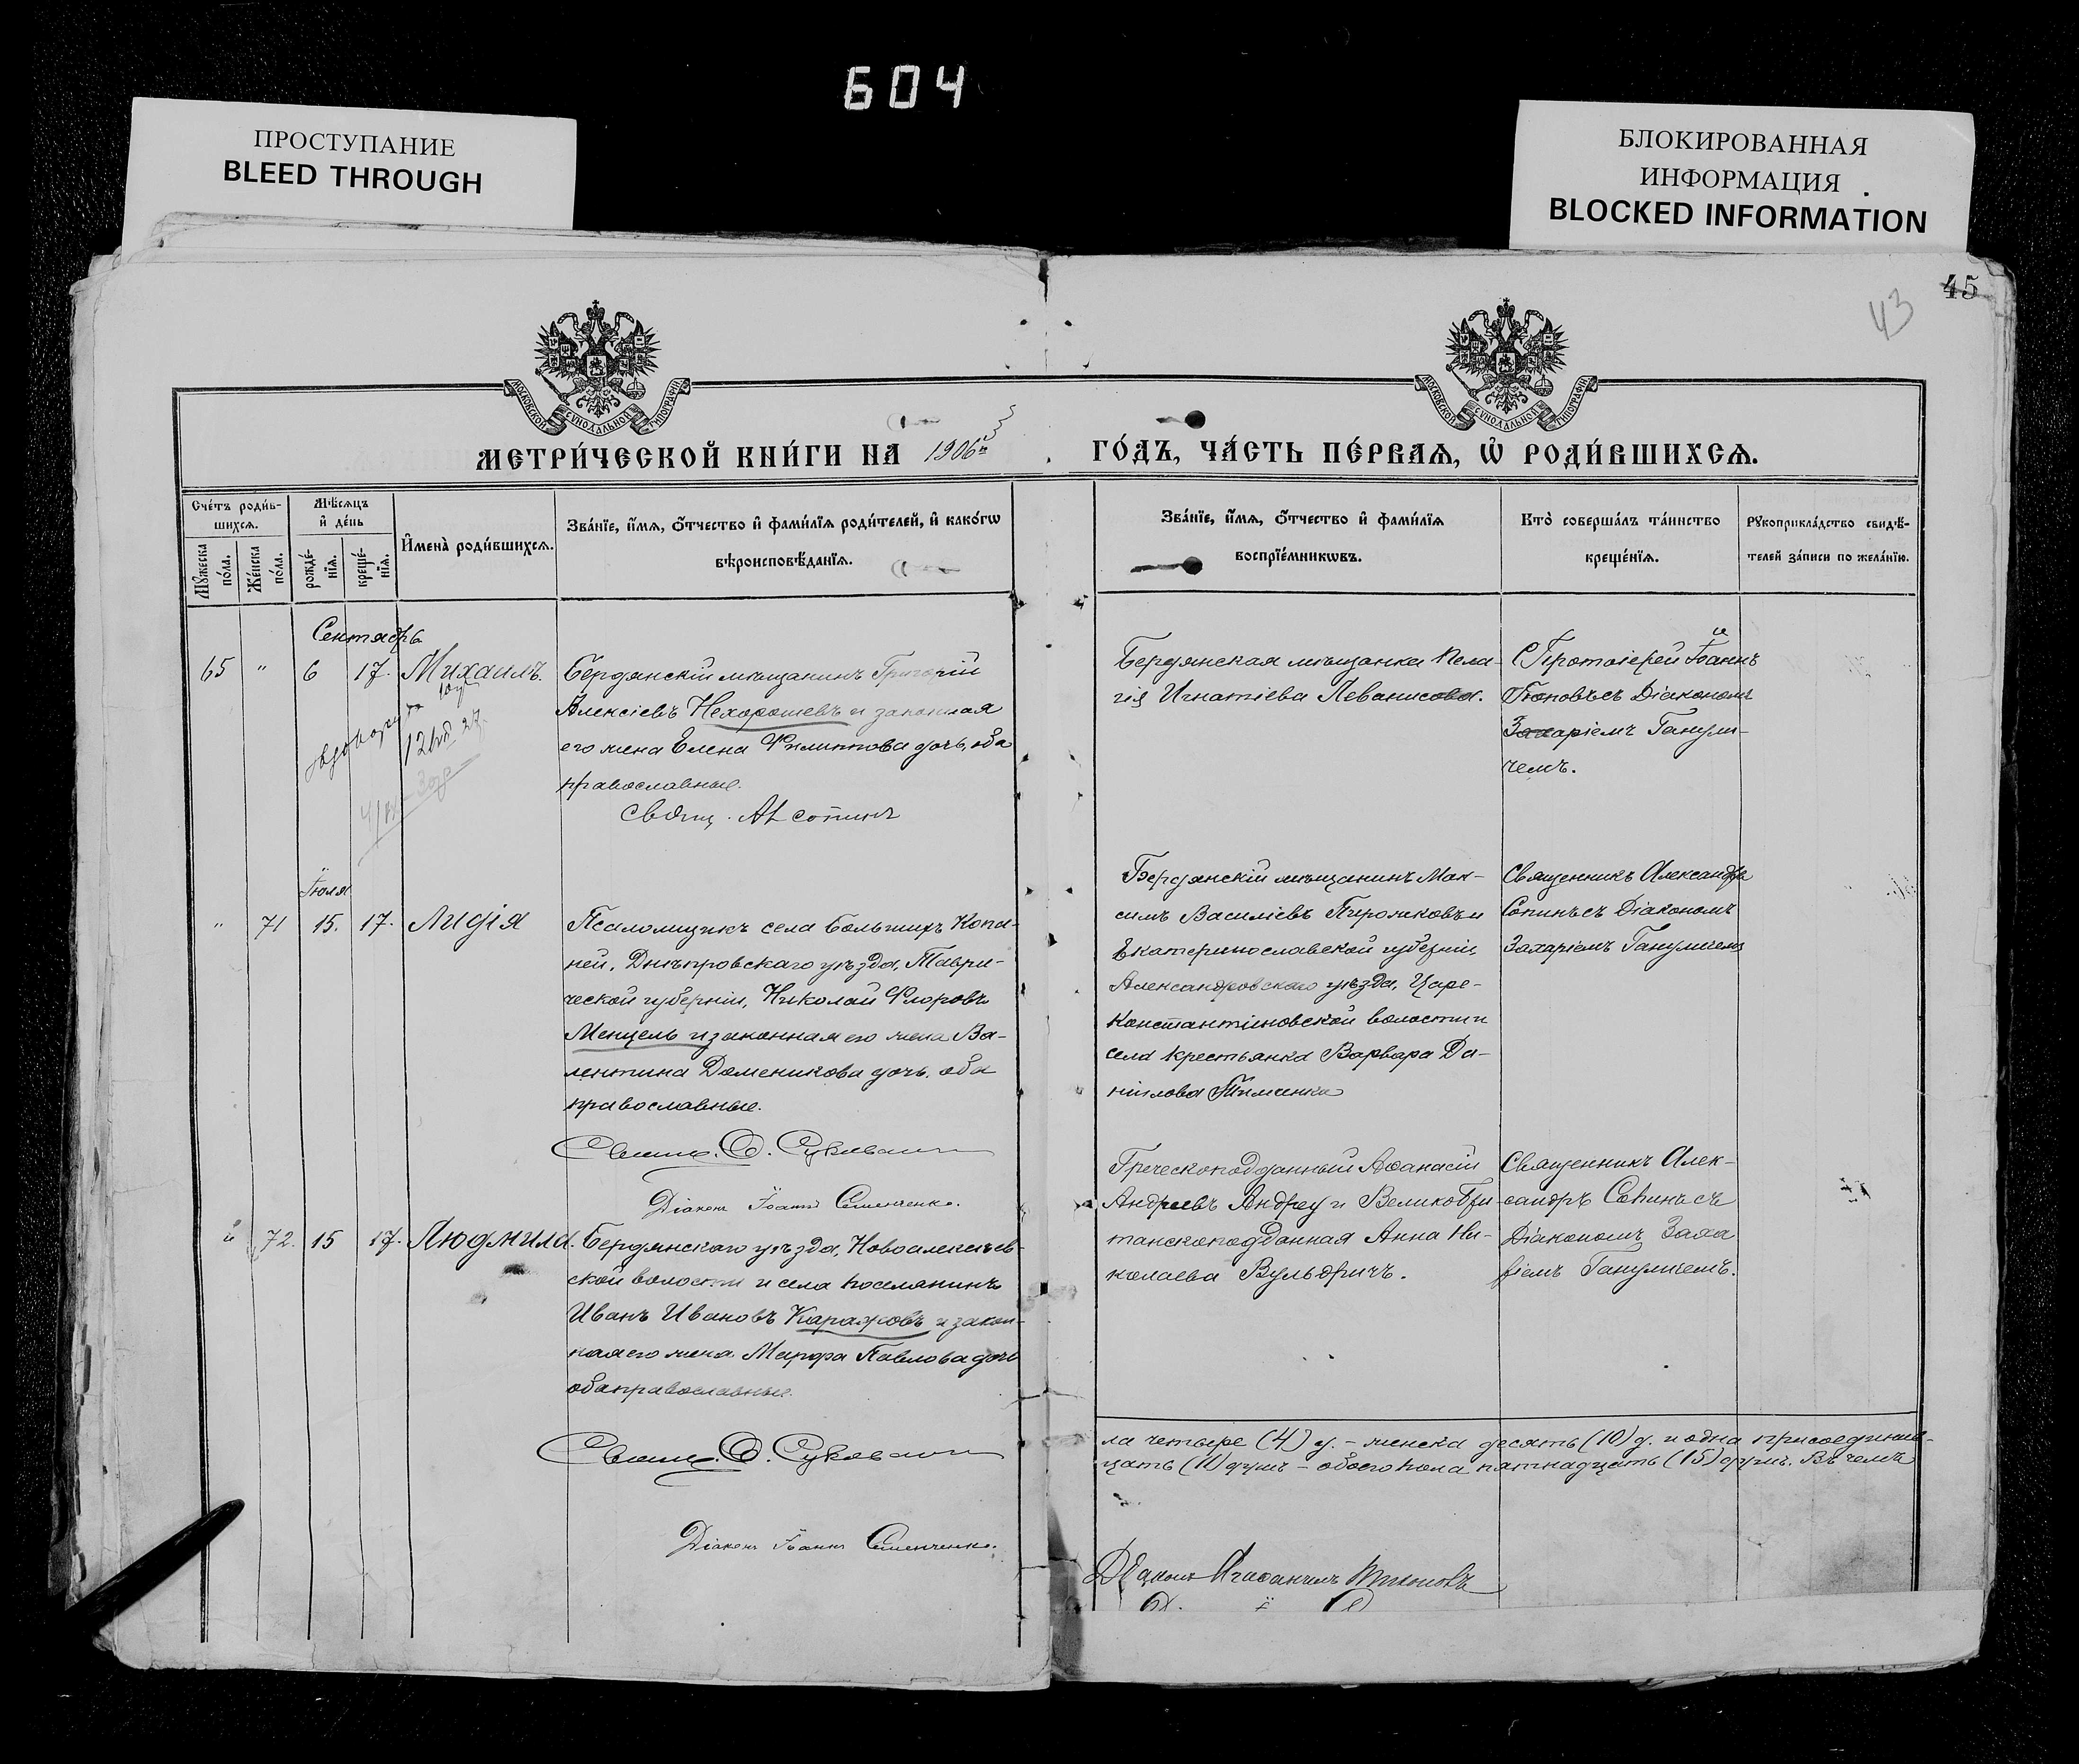 604
ПРОСТУПАНИЕ
BLEED THROUGH
БЛОКИРОВАННАЯ
ИНФОРМАЦИЯ
BLOCKED INFORMATION
45
43
МОСКОВСКОЙ СѴНОДАЛЬНОЙ ТИПОГРАФІИ
МОСКОВСКОЙ СѴНОДАЛЬНОЙ ТИПОГРАФІИ
МЕТРИ́ЧЕСКОЙ КНИ́ГИ НА 1906й
ГО́ДЪ, ЧА́СТЬ ПЕ́РВАЯ, Ѿ РОДИ́ВШИХСЯ.
Сче́тъ роди́в-
шихся.
Мѣ́сяцъ
и҆ де́нь
Мꙋ́жеска
по́ла.
Же́нска
по́ла.
рожде́-
нїя.
креще́-
нїя.
И҆мена̀ роди́вшихся.
Зва́нїе, и҆́мя, ѻ҆́тчество и҆ фами́лїя роди́телей, и҆ како́гѡ
вѣроисповѣ́данїя.
Зва́нїе, и҆́мя, ѻ҆́тчество и҆ фами́лїя
воспрїе́мникѡвъ.
Кто̀ соверша́лъ та́инство
креще́нїя.
Рꙋкоприкла́дство свидѣ́-
телей за́писи по жела́нїю.
Сентябрь
65 " 6 17. Михаилъ.
Бердянскій мѣщанинъ Григорій
Алексіевъ Нехорошевъ и законная
его жена Елена Филиппова дочь, оба
православные.
Бердянская мѣщанка Пела-
гія Игнатіева Леванисова.
Протоіерей Іоаннъ
Поповъ съ Діакономъ
Захаріемъ Ганули-
чемъ.
Іюля
" 71 15. 17. Лидія
Псаломщикъ села Большихъ Копа-
ней, Днѣпровскаго уѣзда, Таври-
ческой губерніи, Николай Флоровъ
Менцель и законная его жена Ва-
лентина Доменикова дочь, оба
православные.
Діаконъ Іоаннъ Семенченко.
Бердянскій мѣщанинъ Мак-
симъ Василіевъ Пирожковъ и
Екатеринославской губерніи,
Александровскаго уѣзда, Царе-
Константиновской волости и
села крестьянка Варвара Да-
ніилова
Священникъ Александръ
Сопинъ съ Діакономъ
Захаріемъ Гануличемъ
72. 15 17. Людмила.
Бердянскаго уѣзда, Новоалексѣев-
ской волости и села поселянинъ
Иванъ Ивановъ Каражовъ и закон-
ная его жена Марфа Павлова дочь
оба православные.
Діаконъ Іоаннъ Семенченко.
Греческоподданный Аѳанасій
Андреевъ Андреу и Великобри-
танскоподданная Анна Ни-
колаева Вульфричъ.
Священникъ Алек-
сандръ Сопинъ съ
Діакономъ Заха
ріемъ Гануличемъ.
ла четыре (4) д. – женска десять (10) д. и одна присоедине-
цать (11) душъ – обоего пола пятнадцать (15) душъ. Въ чемъ